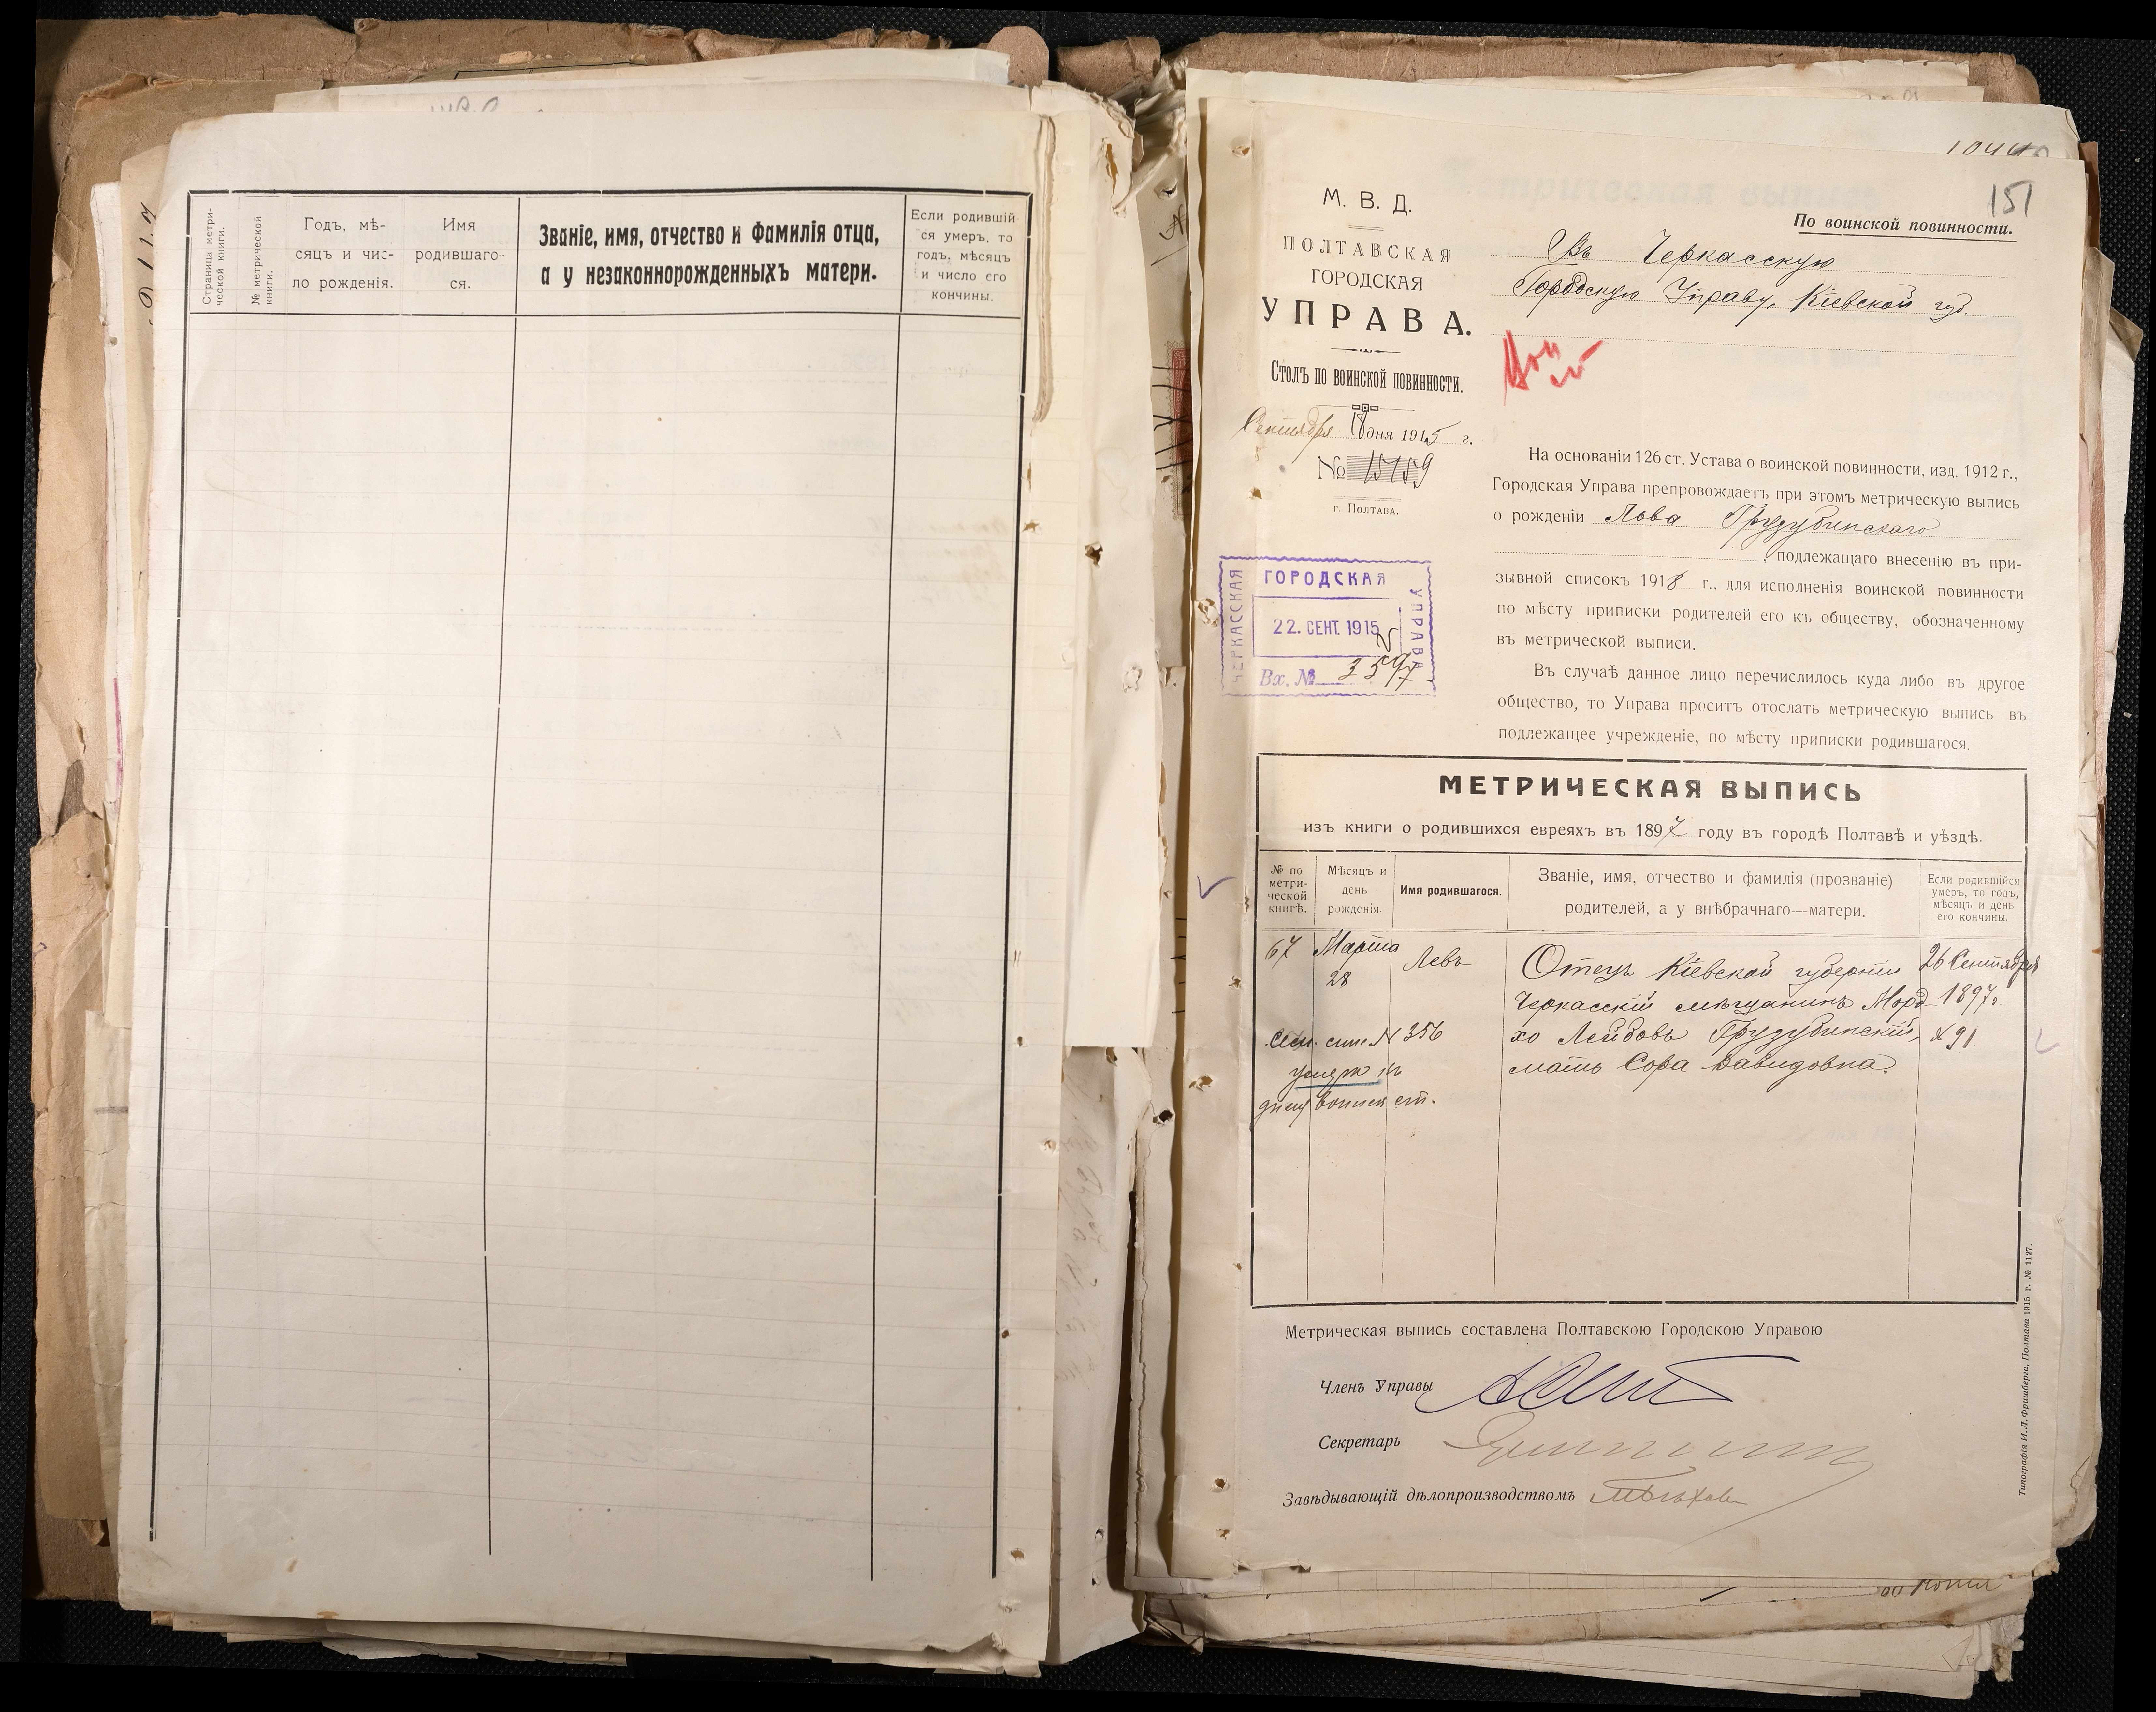 Страница метри-
ческой книги.
№ метрической
книги.
Годъ, мѣ-
сяцъ и чис-
ло рожденія.
Имя
родившаго-
ся.
Званіе, имя, отчество и фамилія отца,
а у незаконнорожденныхъ матери.
Если родившій
ся умеръ, то
годъ, мѣсяцъ
и число его
кончины.
151
М. В. Д.
ПОЛТАВСКАЯ
ГОРОДСКАЯ
УПРАВА.
Столъ по воинской повинности.
Сентября 18 дня 1915 г.
№ 15159
г. Полтава.
По воинской повинности.
Въ Черкасскую
Городскую Управу, Кіевской губ.
ЧЕРКАССКАЯ
ГОРОДСКАЯ
УПРАВА
22. СЕНТ. 1915
Вх. № 3597
На основаніи 126 ст. Устава о воинской повинности, изд. 1912 г.,
Городская Управа препровождаетъ при этомъ метрическую выпись
о рожденіи Льва Грузубинскаго
, подлежащаго внесенію въ при-
зывной списокъ 1918 г.. для исполненія воинской повинности
по мѣсту приписки родителей его къ обществу, обозначенному
въ метрической выписи.
Въ случаѣ данное лицо перечислилось куда либо въ другое
общество, то Управа проситъ отослать метрическую выпись въ
подлежащее учрежденіе, по мѣсту приписки родившагося.
МЕТРИЧЕСКАЯ ВЫПИСЬ
изъ книги о родившихся евреяхъ въ 1897 году въ городѣ Полтавѣ и уѣздѣ.
№ по
метри-
ческой
книгѣ.
Мѣсяцъ и
день
рожденія.
Имя родившагося.
Званіе, имя, отчество и фамилія (прозваніе)
родителей, а у внѣбрачнаго—матери.
Если родившійся
умеръ, то годъ,
мѣсяцъ и день
его кончины.
67
Марта
28
Левъ
Отецъ Кіевской губерніи
Черкасскій мѣщанинъ Морд-
хо Лейбовъ Грузубинскій,
мать Сора Давидовна.
26 Сентября
1897г.
№ 91.
№ 356
Метрическая выпись составлена Полтавскою Городскою Управою
Членъ Управы
Секретарь
Завѣдывающій дѣлопроизводствомъ
Типографія И. Л. Фришберга, Полтава 1915 г. № 1127.